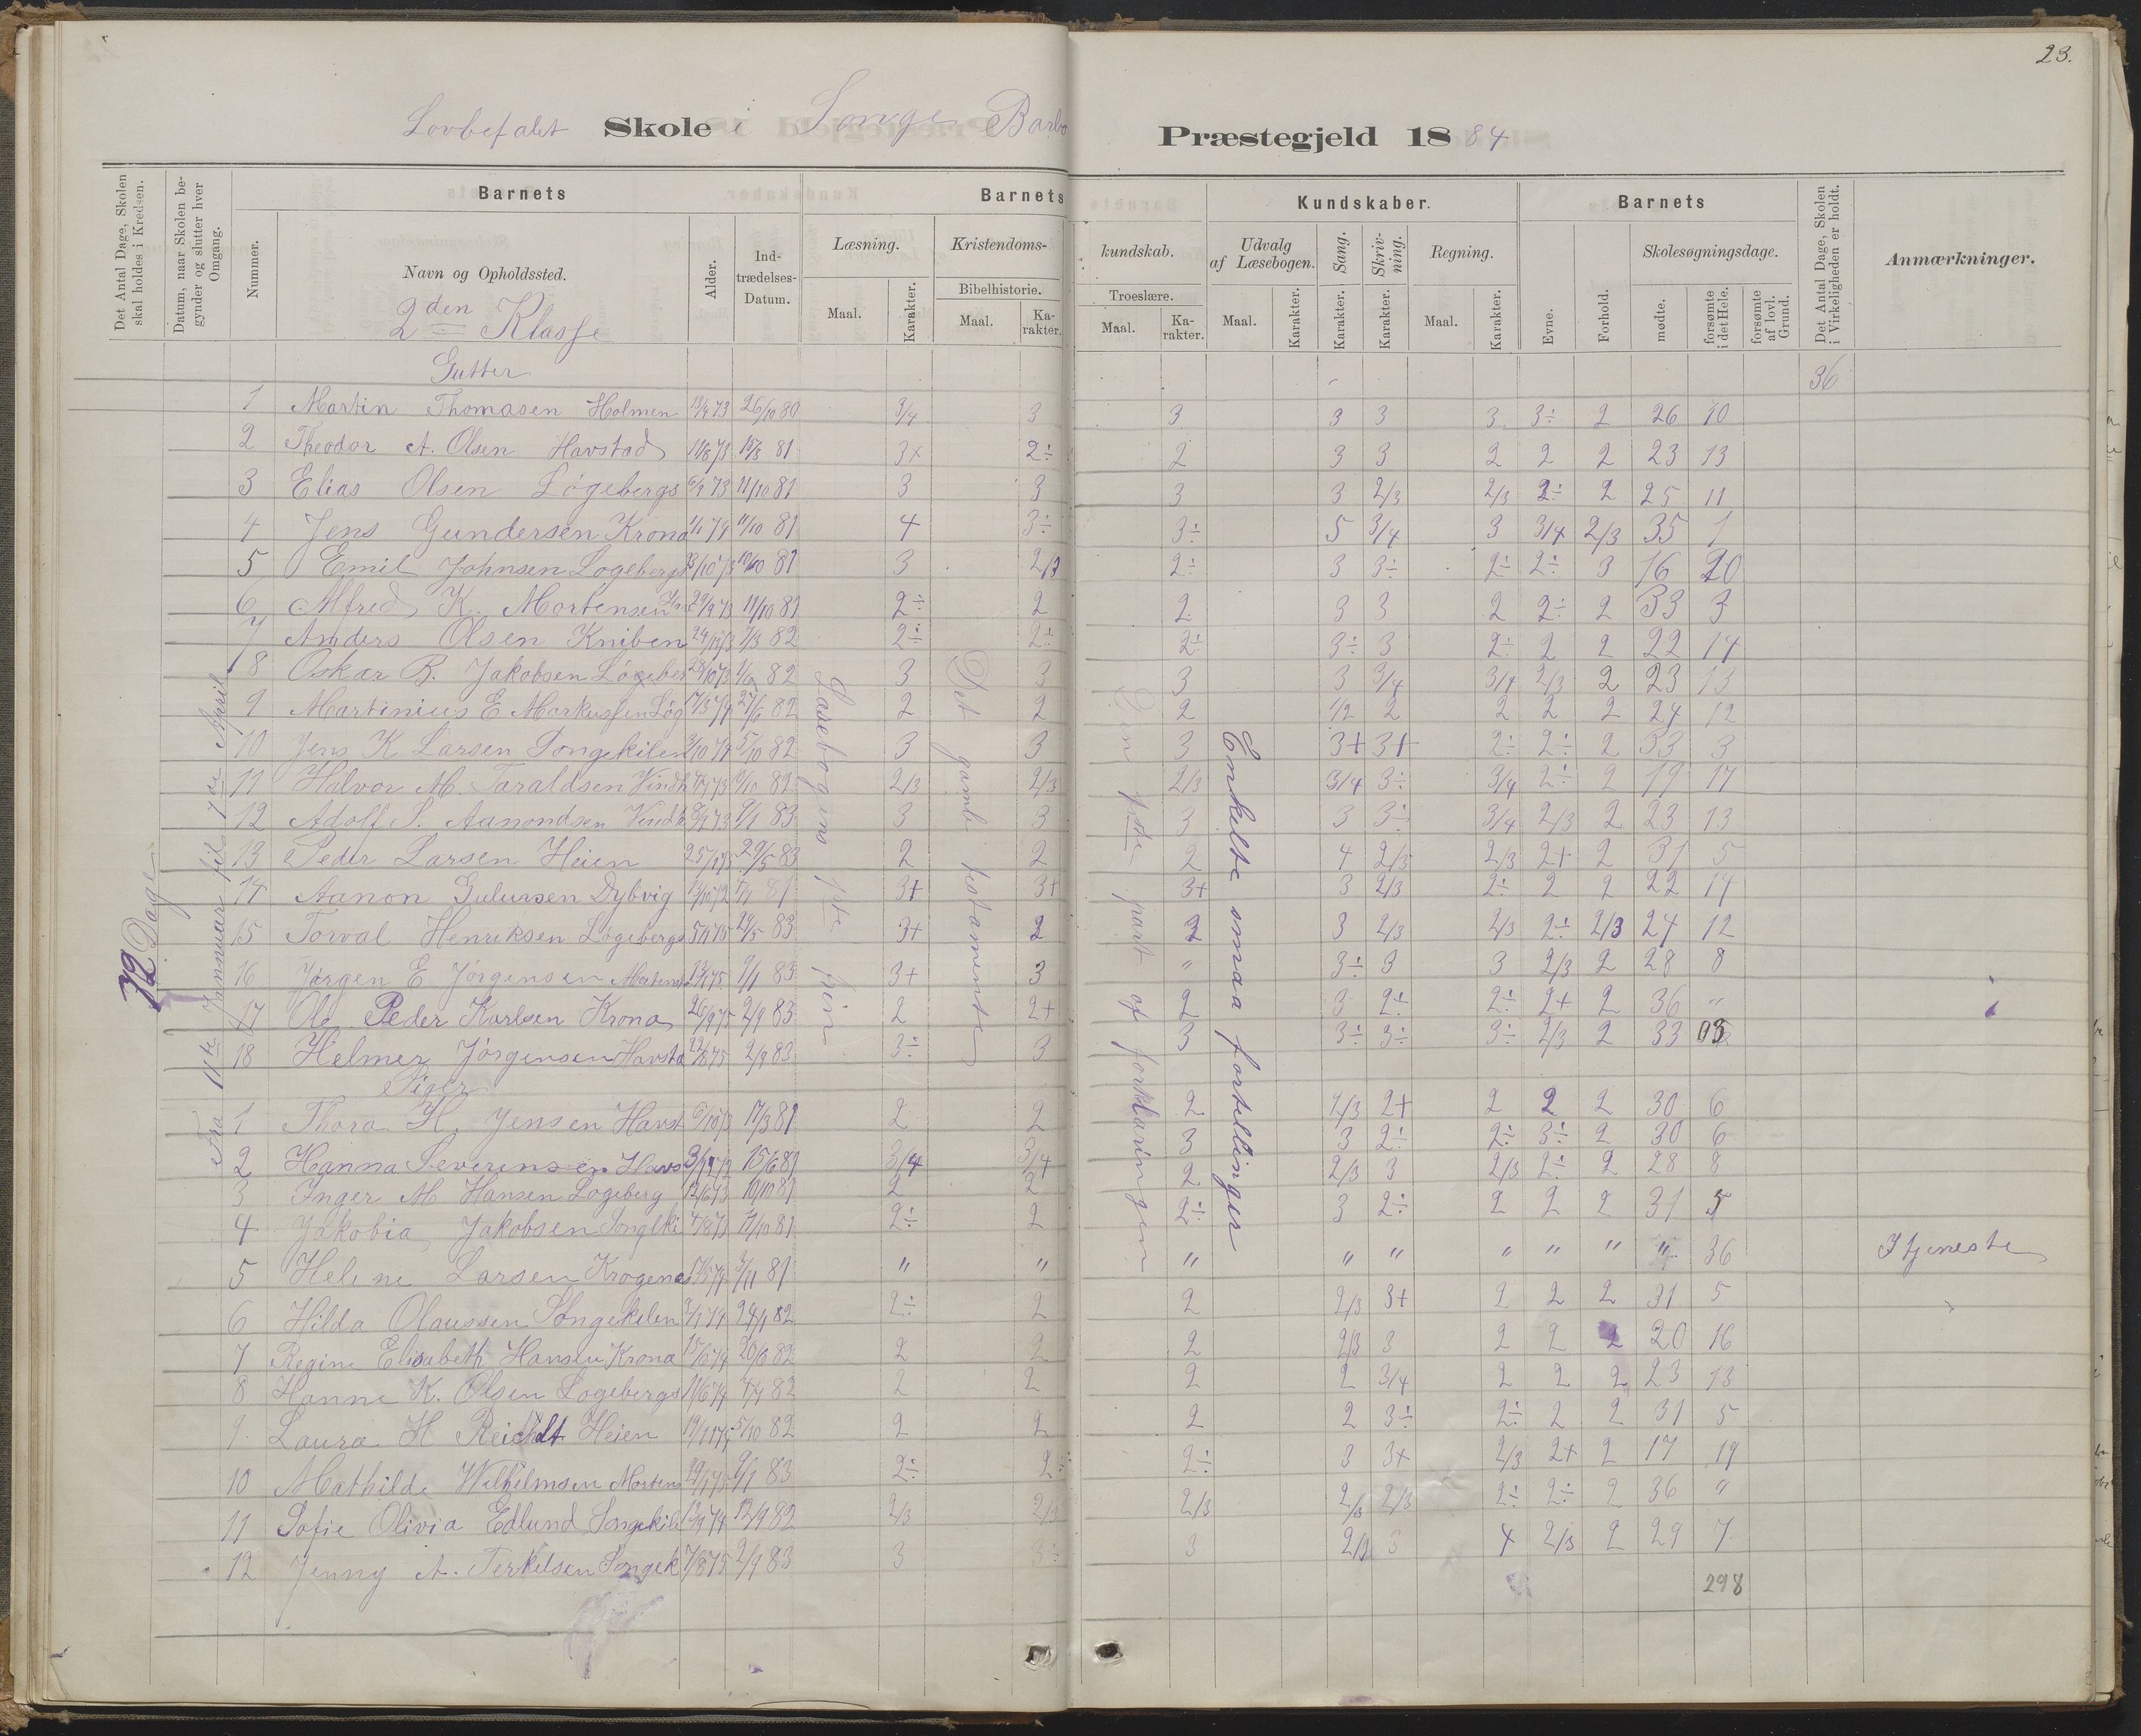 23.
Lovbefalet Skole i Songe Barbo Præstegjeld 1884
Det Antal Dage, Skolen skal holdes i Kredsen.
Datum, naar Skolen begynder og slutter hver Omgang.
Nummer.
Barnets
Navn og Opholdssted.
Alder.
Indtrædelses-Datum.
Barnets Kundskaber.
Læsning.
Maal.
Karakter.
Kristendoms-kundskab.
Bibelhistorie.
Maal.
Karakter.
Troeslære.
Maal.
Karakter.
Udvalg af Læsebogen.
Maal.
Karakter.
Sang.
Karakter.
Skrivning.
Karakter.
Regning.
Maal.
Karakter.
Barnets
Evne.
Forhold.
Skolesøgningsdage.
mødte.
forsømte i det Hele.
forsømte af lovl. Grund.
Det Antal Dage, Skolen i Virkeligheden er holdt.
Anmærkninger.
2den Klasse
Gutter
36
72 Dage
Fra 11te Januar til 1ste April
Læsebogens 1ste trin
Det gamle testamente
Den 1ste part af forklaringen
Enkelte smaa fortellinger
1 Martin Thomasen Holmen 26/10 80 3/4 3 3 3 3 3 3÷ 2 26 10
2 Theodor A. Olsen Havstad 81 3+ 2÷ 2 3 3 2 2 2 23 13
3 Elias Olsen Løgebergs 11/10 81 3 3 3 3 2/3 2/3 2÷ 2 25 11
4 Jens Gundersen Krona 11/10 81 4 3÷ 3÷ 5 3/4 3 3/4 2/3 35 1
5 Emil Johnsen Logebergs 81 3 2/3 2÷ 3 3÷ 2÷ 2÷ 3 16 20
6 Alfred K. Mortensen 29/9 73 11/10 81 2÷ 2 2 3 3 2 2÷ 2 33 3
7 Anders Olsen Kniben 7/3 82 2÷ 2÷ 2÷ 3÷ 3 2÷ 2 2 22 14
8 Oskar B. Jakobsen Løgeber 82 3 3 3 3 3/4 3/4 2/3 2 23 13
9 Martinius E Markussen Løg 27/6 82 2 2 2 1/2 2 2 2 2 24 12
10 Jens K Larsen Songekilen 5/10 82 3 3 3 3+ 3+ 2÷ 2÷ 2 33 3
11 Halvor M. Taraldsen 82 2/3 2/3 2/3 3/4 3÷ 3/4 2÷ 2 19 17
12 Adolf S. Aanondsen 83 3 3 3 3 3÷ 3/4 2/3 2 23 13
13 Peder Larsen Heien 29/5 83 2 2 2 4 2/3 2/3 2+ 2 31 5
14 Aanon Gulursen Dybvig 81 3+ 3+ 3+ 3 2/3 2÷ 2 2 22 14
15 Torval Henriksen Løgebergs 83 3+ 2 2 3 2/3 2/3 2÷ 2/3 24 12
16 Jørgen E Jørgensen 83 3+ 3 " 3÷ 3 3 2/3 2 28 8
17 Ole Peder Karlsen Krona 26/9 75 2/9 83 2 2+ 2 3 2÷ 2÷ 2+ 2 36 "
18 Helmer Jørgensen Havsta 2/9 83 3÷ 3 3 3÷ 3÷ 3÷ 2/3 2 33 03
Piger
1 Thora H. Jensen Havst 17/3 81 2 2 2 2/3 2+ 2 2 2 30 6
2 Hanna Severinsen Havs 15/6 81 3/4 3/4 3 3 2÷ 2÷ 3÷ 2 30 6
3 Inger M Hansen Logeberg 10/10 81 2 2 2 2/3 3 2/3 2÷ 2 28 8
4 Jakobia Jakobsen Songeki 81 2÷ 2 2÷ 3 2÷ 2 2 2 31 5
5 Heline Larsen Krogenes 81 " " " " " " " " " 36 I tjeneste
6 Hilda Olaussen Songekilen 24/1 82 2÷ 2 2 2/3 3+ 2 2 2 31 5
7 Regine Elisabeth Hansen Krona 82 2 2 2 2/3 3 2 2 2 20 16
8 Hanne K. Olsen Logebergs 82 2 2 2 2 3/4 2 2 2 23 13
9. Laura H Reichelt Heien 5/10 82 2 2 2 2 3÷ 2÷ 2 2 31 5
10 Mathilde Wilhelmsen Mortens 83 2÷ 2÷ 2÷ 3 3+ 2/3 2+ 2 17 19
11 Sofie Olivia Edlund Songekil 12/9 82 2/3 2/3 2/3 2/3 2/3 2÷ 2÷ 2 36 "
12 Jenny A. Terkelsen Songek 7/8 75 2/9 83 3 3÷ 3 2/3 3 4 2/3 2 29 7
298